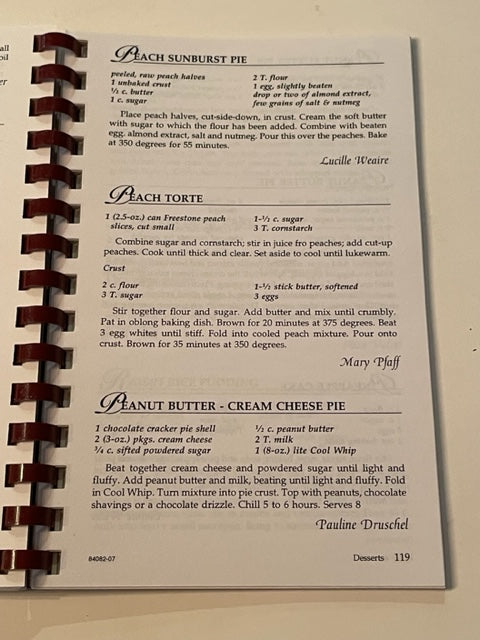 all
oil
er
PEACH SUNBURST PIE
peeled, raw peach halves
1 unbaked crust
½ c. butter
1 c. sugar
2 T. flour
1 egg, slightly beaten
drop or two of almond extract,
few grains of salt & nutmeg
Place peach halves, cut-side-down, in crust. Cream the soft butter
with sugar to which the flour has been added. Combine with beaten
egg, almond extract, salt and nutmeg. Pour this over the peaches. Bake
at 350 degrees for 55 minutes.
Lucille Weaire
PEACH TORTE
1 (2.5-oz.) can Freestone peach
slices, cut small
1-½ c. sugar
3 T. cornstarch
Combine sugar and cornstarch; stir in juice fro peaches; add cut-up
peaches. Cook until thick and clear. Set aside to cool until lukewarm.
Crust
2 c. flour
3 T. sugar
1-½ stick butter, softened
3 eggs
Stir together flour and sugar. Add butter and mix until crumbly.
Pat in oblong baking dish. Brown for 20 minutes at 375 degrees. Beat
3 egg whites until stiff. Fold into cooled peach mixture. Pour onto
crust. Brown for 35 minutes at 350 degrees.
Mary Pfaff
PEANUT BUTTER - CREAM CHEESE PIE
1 chocolate cracker pie shell
2 (3-oz.) pkgs. cream cheese
¾ c. sifted powdered sugar
½ c. peanut butter
2 T. milk
1 (8-oz.) lite Cool Whip
Beat together cream cheese and powdered sugar until light and
fluffy. Add peanut butter and milk, beating until light and fluffy. Fold
in Cool Whip. Turn mixture into pie crust. Top with peanuts, chocolate
shavings or a chocolate drizzle. Chill 5 to 6 hours. Serves 8
Pauline Druschel
84082-07
Desserts 119